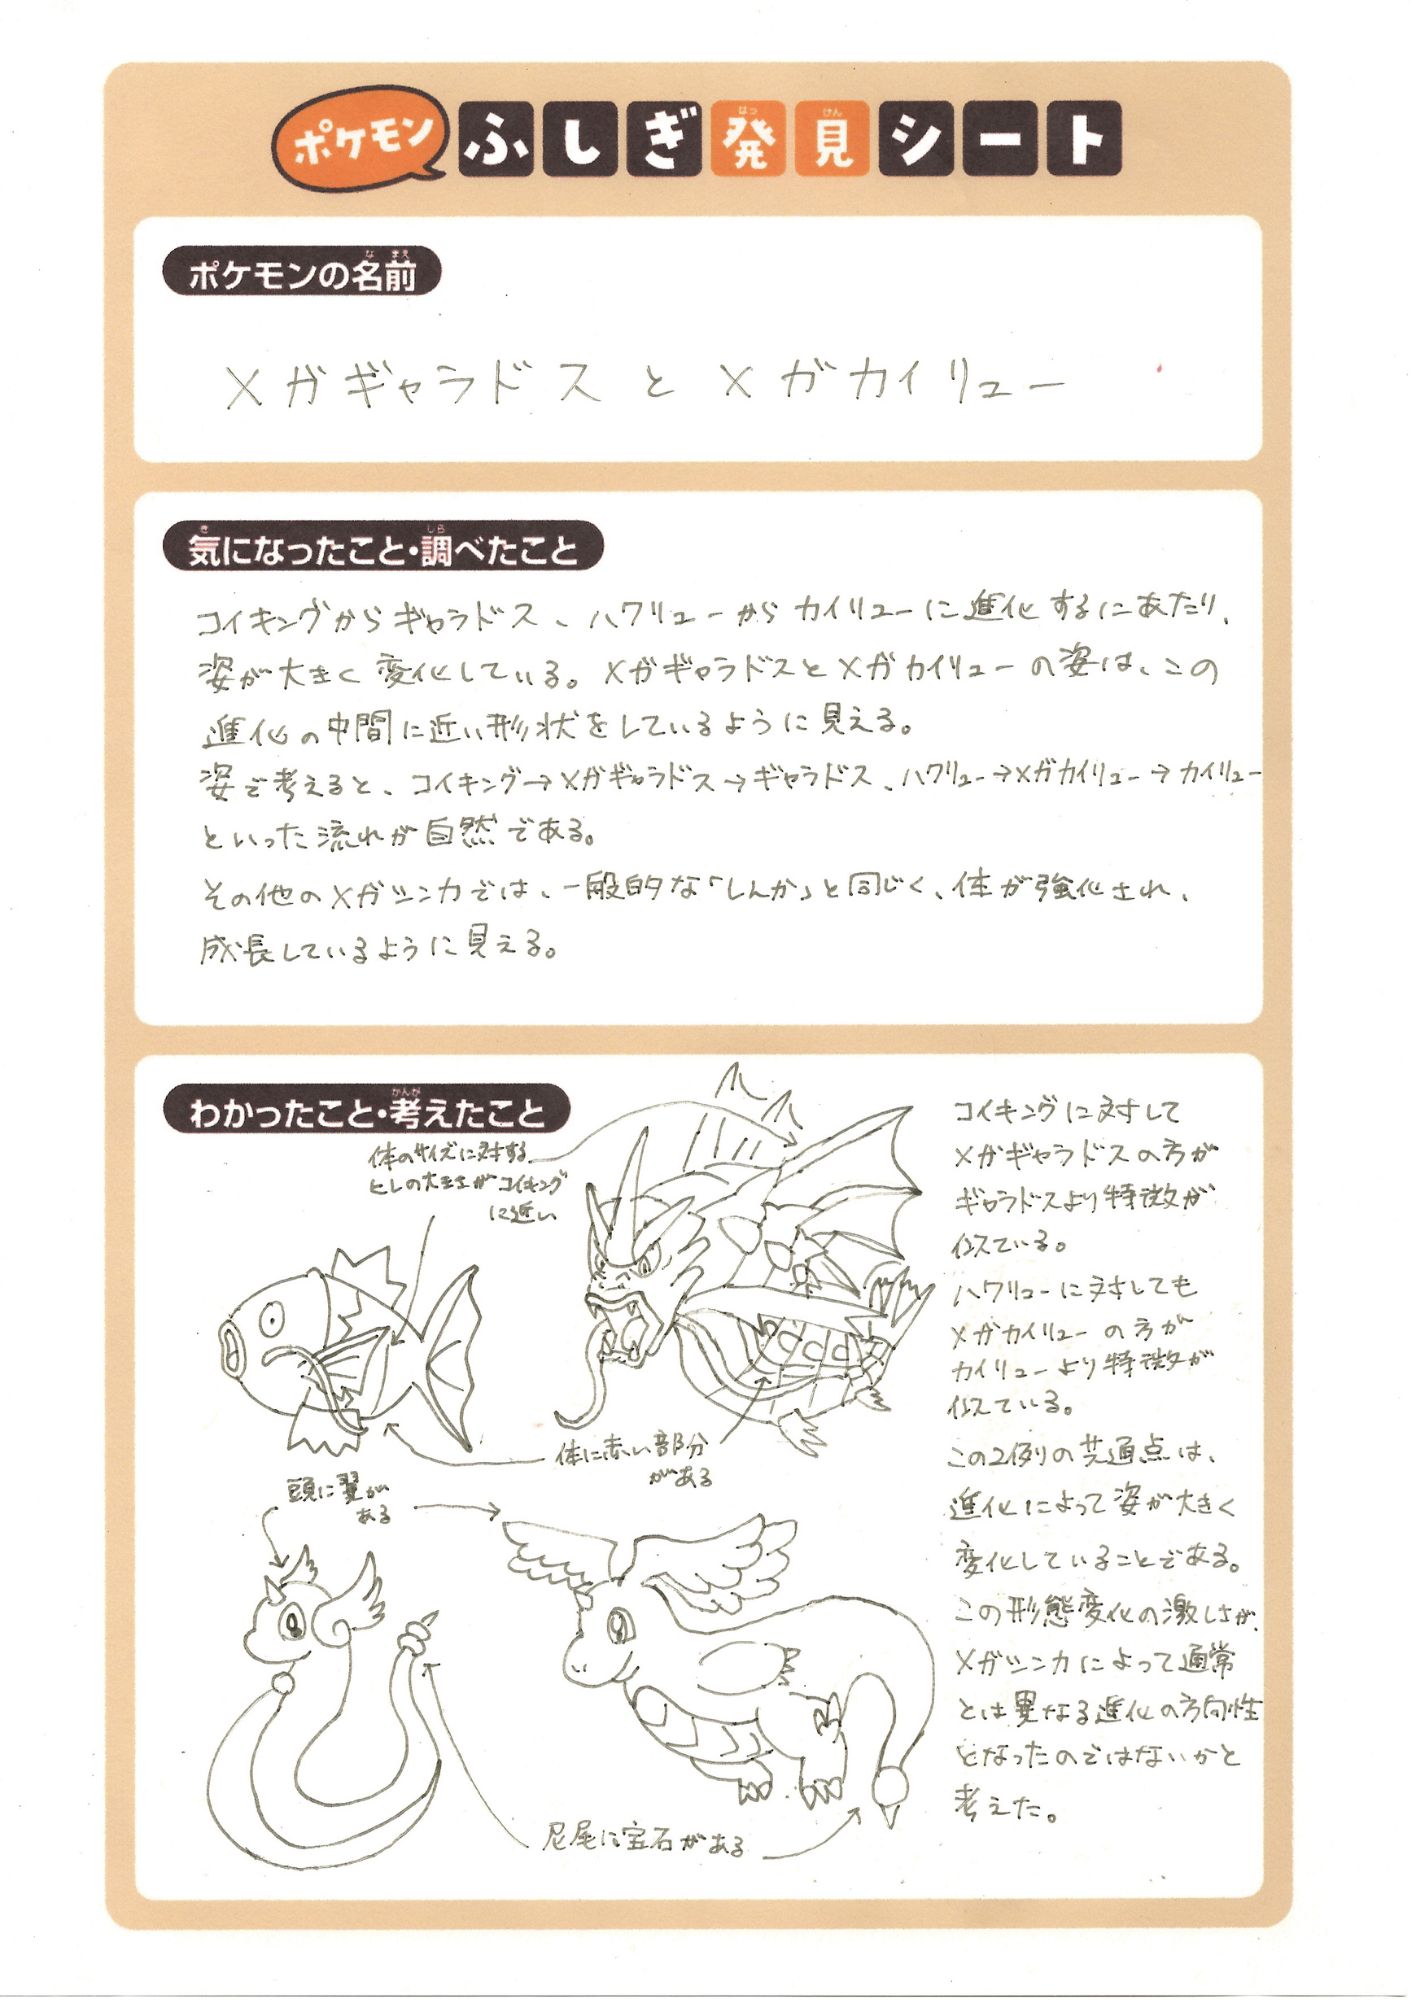 ポケモン ふしぎ発見シート
ポケモンの名前
メガギャラドスとメガカイリュー
気になったこと・調べたこと
コイキングからギャラドス、ハクリューからカイリューに進化するにあたり、
姿が大きく変化している。メガギャラドスとメガカイリューの姿は、この
進化の中間に近い形状をしているように見える。
姿で考えると、コイキング→メガギャラドス→ギャラドス、ハクリュー→メガカイリュー→カイリュー
といった流れが自然である。
その他のメガシンカでは、一般的な「しんか」と同じく、体が強化され、
成長しているように見える。
わかったこと・考えたこと
体のサイズに対する
ヒレの大きさがコイキング
に近い
体に赤い部分
がある
頭に翼が
ある
尻尾に宝石がある
コイキングに対して
メガギャラドスの方が
ギャラドスより特徴が
似ている。
ハクリューに対しても
メガカイリューの方が
カイリューより特徴が
似ている。
この2例の共通点は、
進化によって姿が大きく
変化していることである。
この形態変化の激しさが、
メガシンカによって通常
とは異なる進化の方向性
となったのではないかと
考えた。